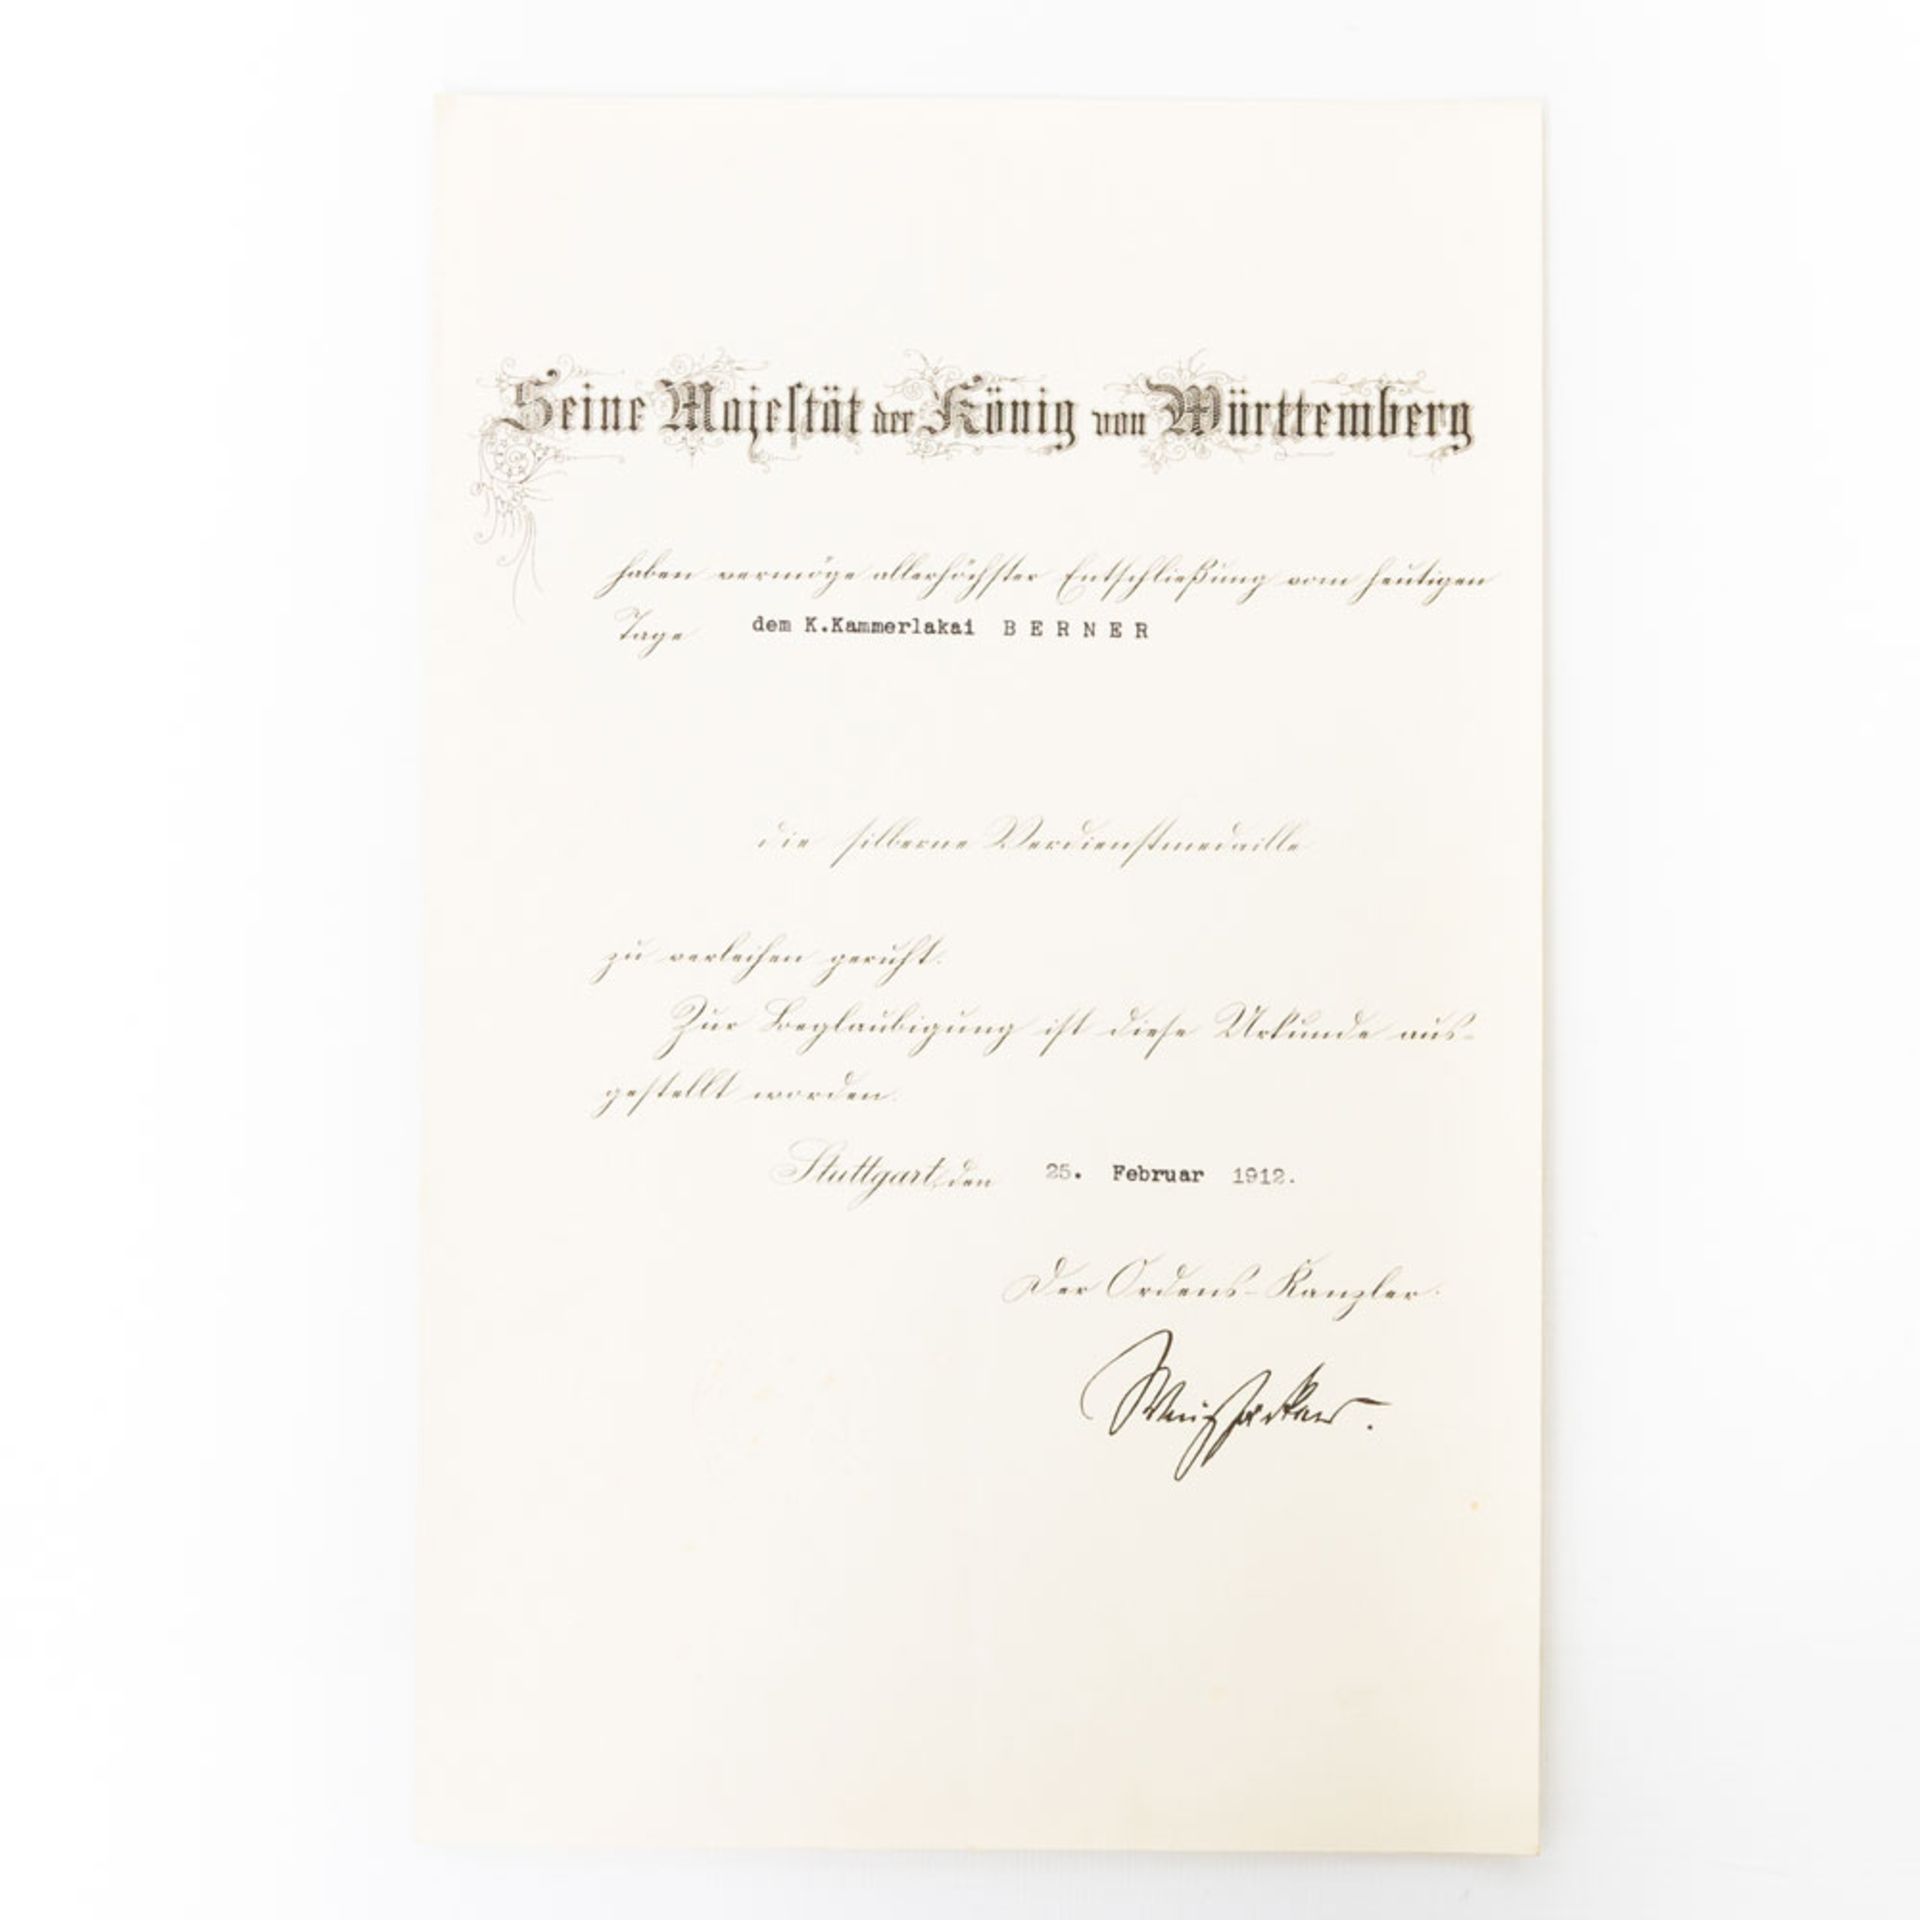 Seine Majestät der König von Württemberg
haben vermöge allerhöchster Entschließung vom heutigen
Tage dem K.Kammerlakai BERNER
die silberne Verdienstmedaille
zu verleihen geruht.
Zur Beglaubigung ist diese Urkunde aus-
gestellt worden.
Stuttgart, den 25. Februar 1912.
Der Ordens-Kanzler.
Weizsäcker.